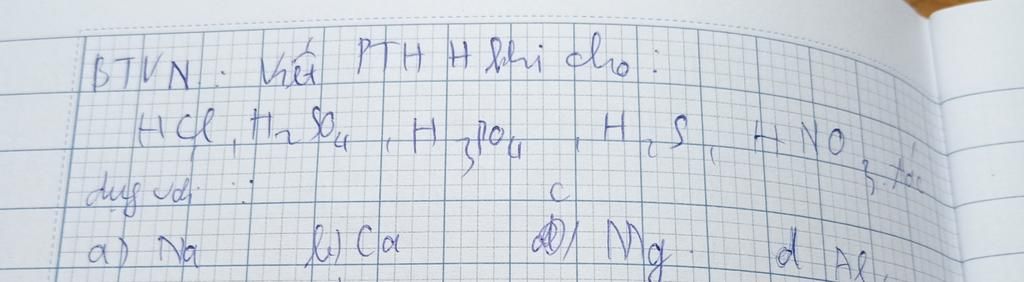 BTVN : Viết PTHH khi cho :
HCl, H₂SO₄, H₃PO₄, H₂S, HNO₃ tác
dụng với :
a) Na b) Ca c) Mg d Al